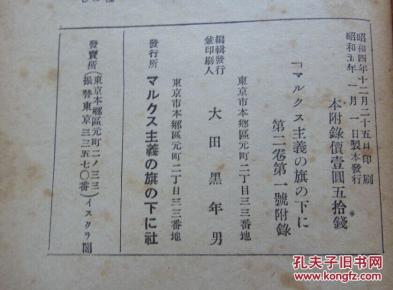 昭和四年十二月二十五日印刷
昭和五年一月一日製本發行
本附錄價壹圓五拾錢
「マルクス主義の旗の下に
第二卷第一號附錄
東京市本鄕區元町二丁目三三番地
編輯發行
兼印刷人
大田黑年男
東京市本鄕區元町二丁目三三番地
發行所
マルクス主義の旗の下に社
發賣所
(東京本鄕區元町二ノ三三)
(振替東京三三五七〇番)
イスクラ閣
孔夫子旧书网